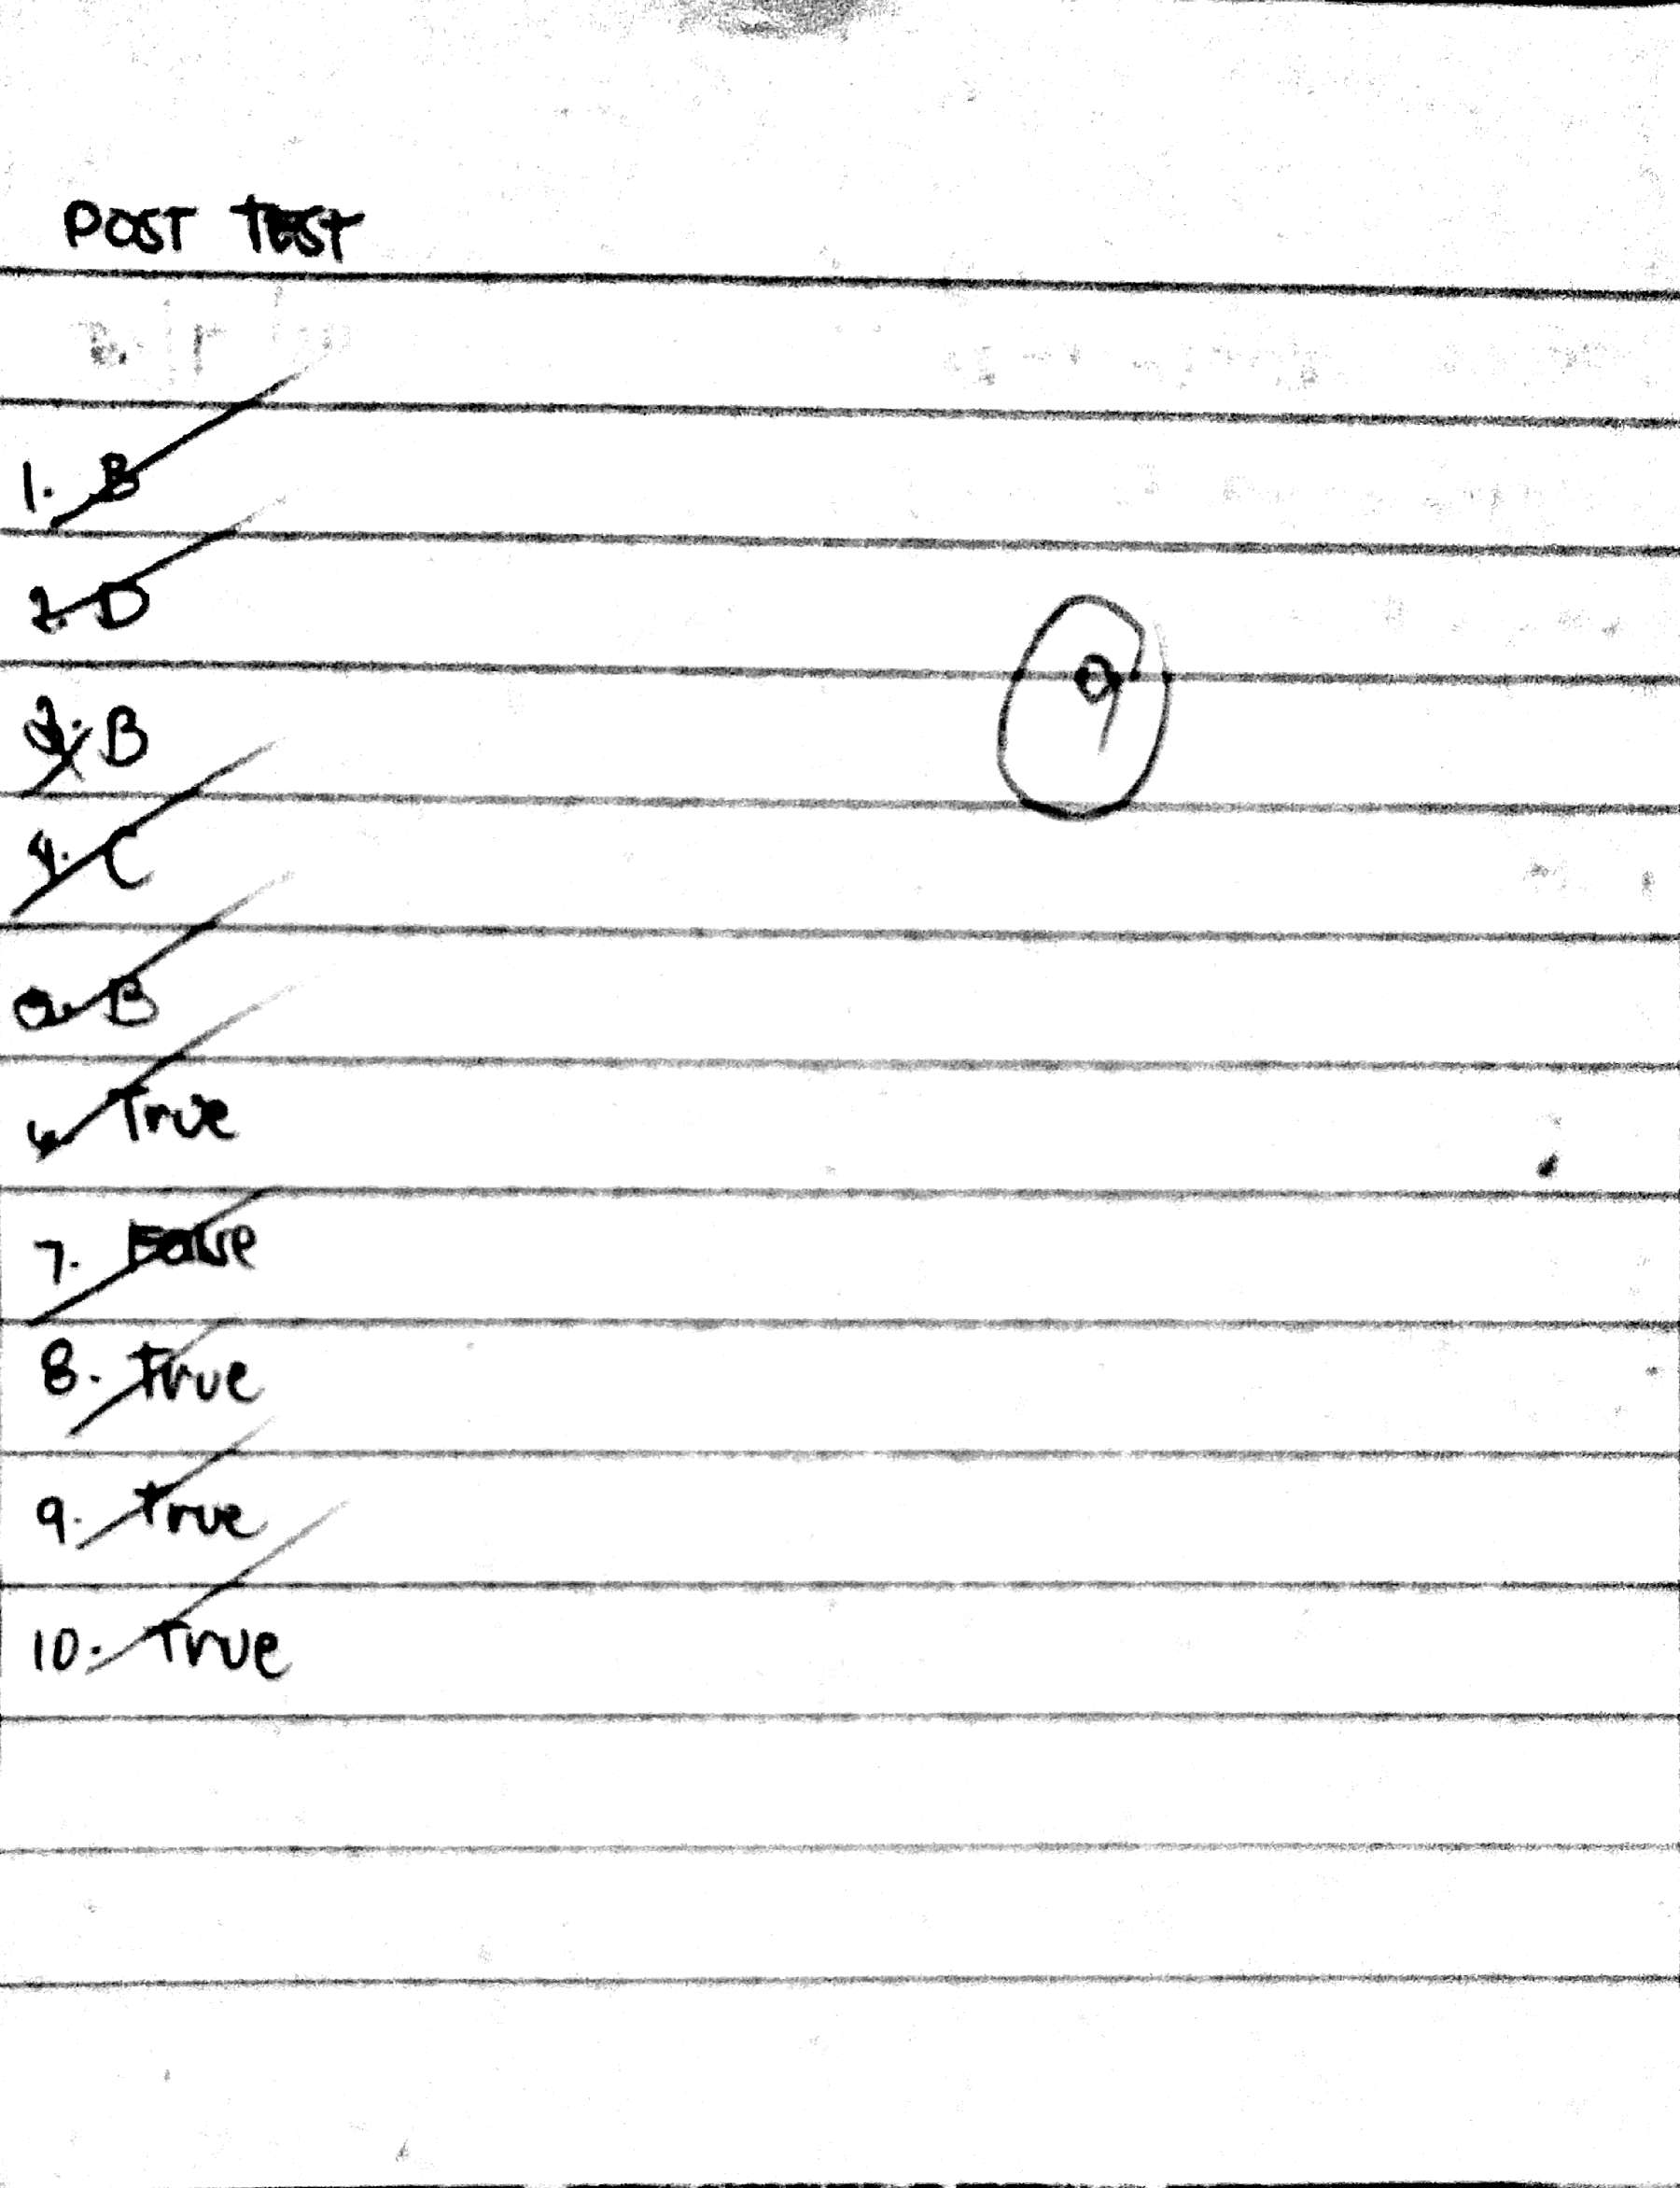 POST TEST
1. B
2. D
9
3. B
4. C
5. B
6. True
7. False
8. True
9. True
10. True